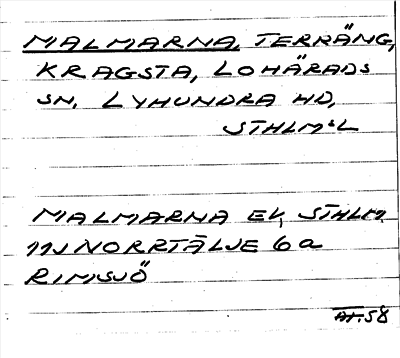 MALMARNA, TERRÄNG,
KRAGSTA, LOHÄRADS
SN. LYHUNDRA HD,
STHLMS L
MALMARNA EK, STHLM
11J NORRTÄLJE 6a
RIMSJÖ
AT. 58